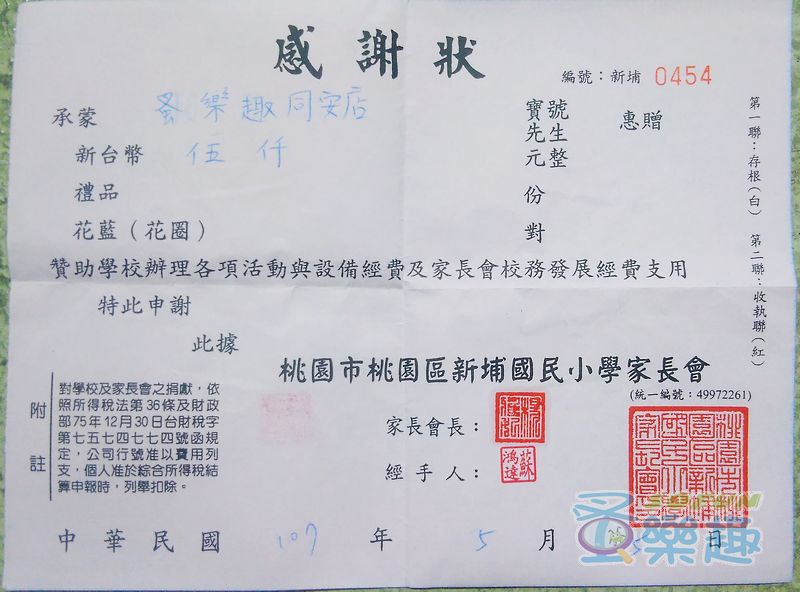 感謝狀
編號：新埔 0454
承蒙 蚤樂趣同安店 寶號 先生 惠贈
新台幣 伍仟 元整
禮品 份
花藍（花圈） 對
贊助學校辦理各項活動與設備經費及家長會校務發展經費支用
特此申謝
此據
桃園市桃園區新埔國民小學家長會
(統一編號：49972261)
家長會長：
經手人：
蘇鴻達
附註
對學校及家長會之捐獻，依
照所得稅法第36條及財政
部75年12月30日台財稅字
第七五七四七七四號函規
定，公司行號准以費用列
支，個人准於綜合所得稅結
算申報時，列舉扣除。
中華民國 107 年 5 月 5 日
第一聯：存根（白） 第二聯：收執聯（紅）
蚤樂趣